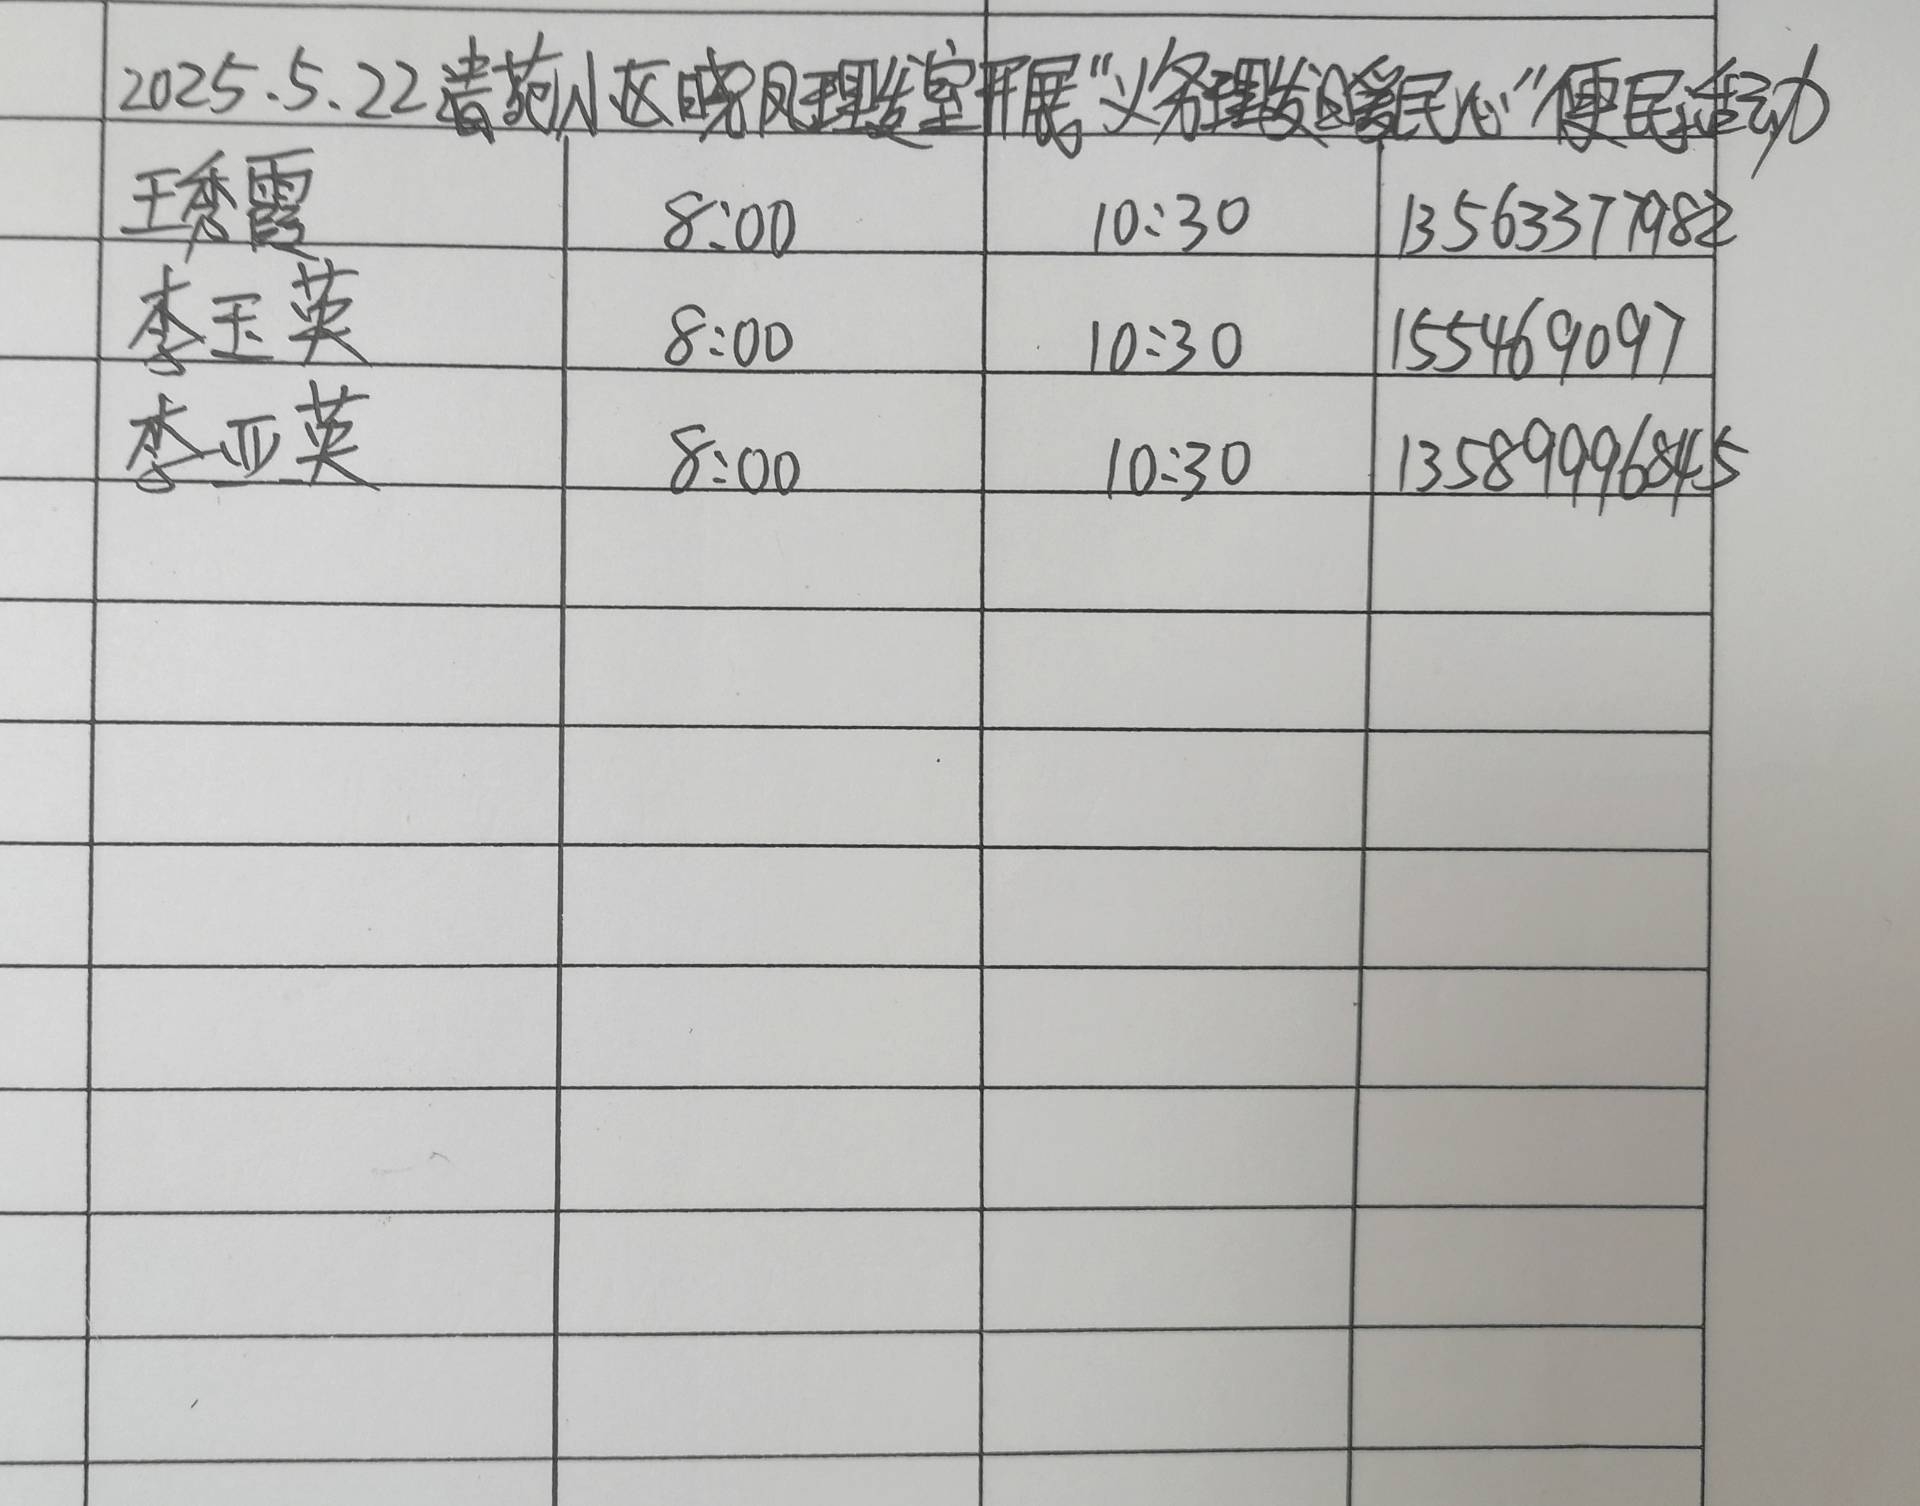 2025.5.22清苑小区晓风理发室开展“义务理发暖民心”便民活动
王秀霞 8:00 10:30 13563377982
李玉英 8:00 10:30 155469097
李亚英 8:00 10:30 13589996845